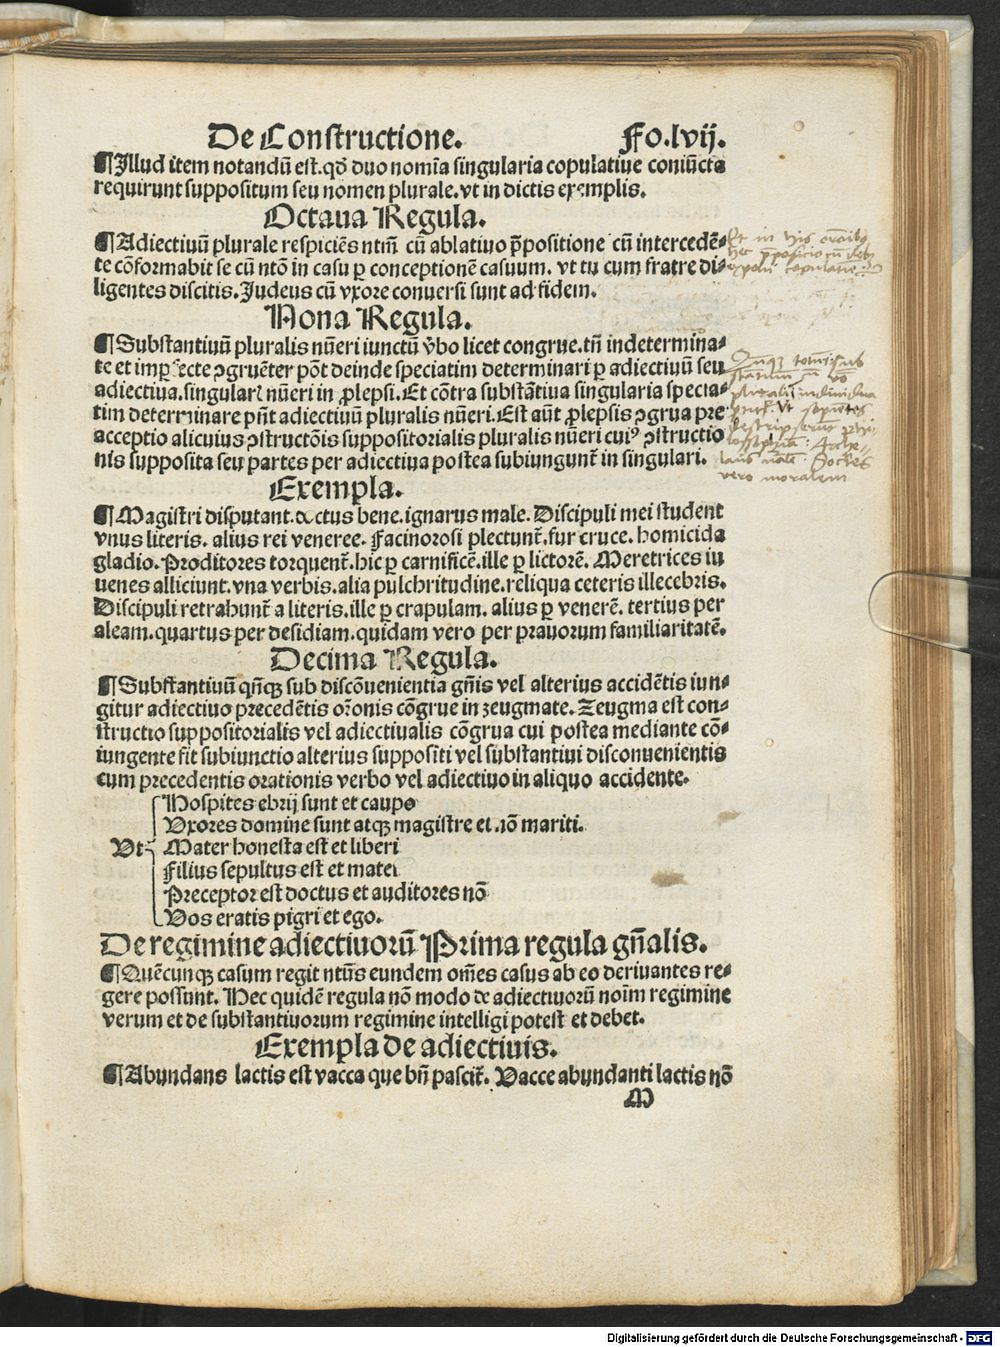 De Constructione. Fo.lvij.
¶Illud item notandū est.qđ duo nom̄ia singularia copulatiue coniūcta
requirunt suppositum seu nomen plurale.vt in dictis exemplis.
Octaua Regula.
¶Adiectiuū plurale respiciēs ntm̄ cū ablatiuo p̄positione cū intercedē-
te cōformabit se cū ntō in casu ꝑ conceptionē casuum. vt tu cum fratre di-
ligentes discitis.Judeus cū vxore conuersi sunt ad fidem.
Nona Regula.
¶Substantiuū pluralis nūeri iunctū v̄bo licet congrue.tn̄ indetermina-
te et imperfecte ꝯgruēter pōt deinde speciatim determinari ꝑ adiectiuū seu
adiectiua.singulari nūeri in ꝓlepsi.Et cōtra substātiua singularia specia-
tim determinare pn̄t adiectiuū pluralis nūeri.Est aūt ꝓlepsis ꝯgrua pre
acceptio alicuius ꝯstructōis suppositorialis pluralis nūeri cuiꝰ ꝯstructio
nis supposita seu partes per adiectiua postea subiungunt̄ in singulari.
Exempla.
¶Magistri disputant.doctus bene.ignarus male. Discipuli mei student
vnus literis. alius rei veneree. Facinorosi plectunt̄.fur cruce. homicida
gladio. Proditores torquent̄.hic ꝑ carnificē.ille ꝑ lictorē. Meretrices iu
uenes alliciunt. vna verbis.alia pulchritudine.reliqua ceteris illecebris.
Discipuli retrahunt̄ a literis.ille ꝑ crapulam. alius ꝑ venerē. tertius per
aleam.quartus per desidiam.quidam vero per prauorum familiaritatē.
Decima Regula.
¶Substantiuū qn̄qꝫ sub discōuenientia gn̄is vel alterius accidētis iun-
gitur adiectiuo precedētis or̄onis cōgrue in zeugmate. Zeugma est con-
structio suppositorialis vel adiectiualis cōgrua cui postea mediante cō-
iungente fit subiunctio alterius suppositi vel substantiui disconuenientis
cum precedentis orationis verbo vel adiectiuo in aliquo accidente.
Hospites ebrij sunt et caupo
Vxores domine sunt atqꝫ magistre et nō mariti.
Vt Mater honesta est et liberi
Filius sepultus est et mater
Preceptor est doctus et auditores nō
Vos eratis pigri et ego.
De regimine adiectiuorū Prima regula gn̄alis.
¶Quēcunqꝫ casum regit ntūs eundem om̄es casus ab eo deriuantes re-
gere possunt. Hec quidē regula nō modo de adiectiuorū noīm regimine
verum et de substantiuorum regimine intelligi potest et debet.
Exempla de adiectiuis.
¶Abundans lactis est vacca que bn̄ pascit̄. Vacce abundanti lactis nō
M
Et in his
vero moralem
Digitalisierung gefördert durch die Deutsche Forschungsgemeinschaft - DFG